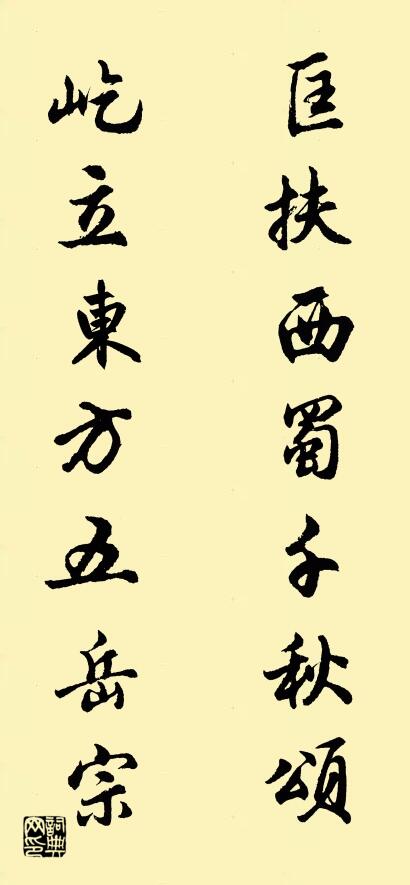 匡扶西蜀千秋頌
屹立東方五岳宗
詞典网印